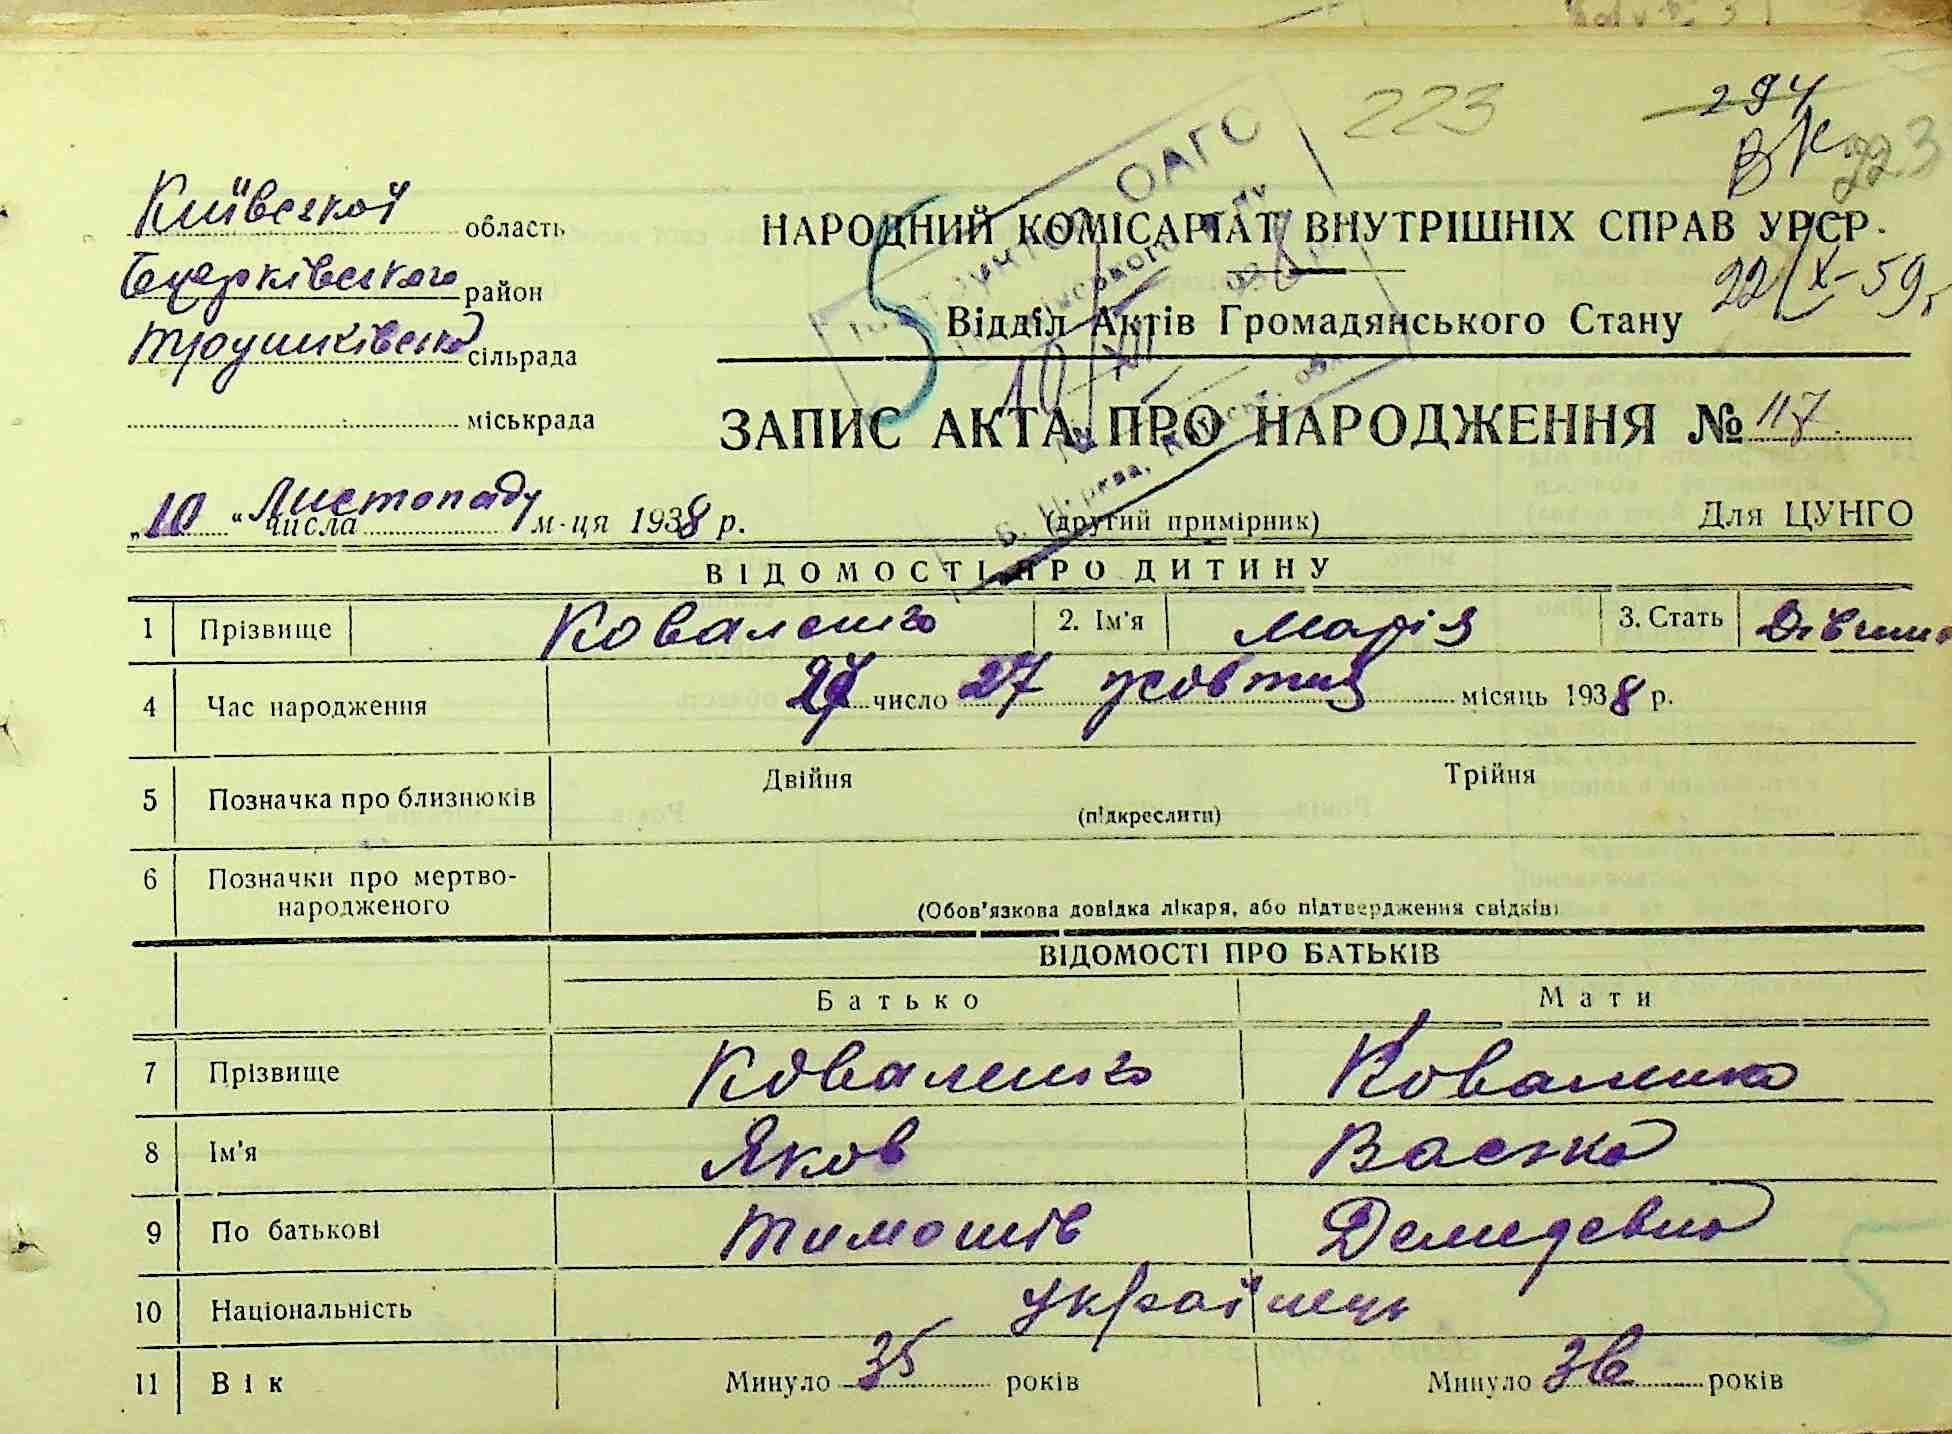 223
294
ВК
223
Київської область
Бцерківського район
Трушківська сільрада
міськрада
НАРОДНИЙ КОМІСАРІАТ ВНУТРІШНІХ СПРАВ УРСР.
22/X-59г
Відділ Актів Громадянського Стану
5
10/XII
ЗАПИС АКТА ПРО НАРОДЖЕННЯ № 117
„10“ числа Листопаду м-ця 1938 р.
(другий примірник)
Для ЦУНГО
ВІДОМОСТІ ПРО ДИТИНУ
1 Прізвище Коваленко 2. Ім'я Марія 3. Стать
4 Час народження 27 число 27 жовтня місяць 1938 р.
5 Позначка про близнюків Двійня Трійня
(підкреслити)
6 Позначки про мертво-
народженого
(Обов'язкова довідка лікаря, або підтвердження свідків)
ВІДОМОСТІ ПРО БАТЬКІВ
Батько Мати
7 Прізвище Коваленко Коваленко
8 Ім'я Яков
9 По батькові Тимошів Демидевна
10 Національність українець
11 Вік Минуло 35 років Минуло 36 років